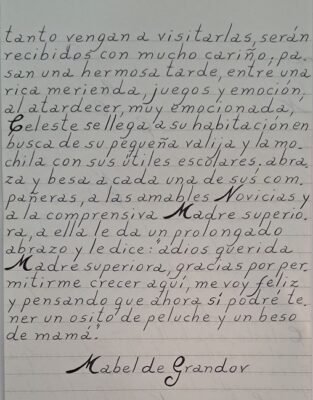 tanto vengan a visitarlas, serán
recibidos con mucho cariño, pa-
san una hermosa tarde, entre una
rica merienda, juegos y emoción.
al atardecer, muy emocionada,
Celeste se llega a su habitación en
busca de su pequeña valija y la mo-
chila con sus útiles escolares. abra-
za y besa a cada una de sus com-
pañeras, a las amables Novicias y
a la comprensiva Madre superio-
ra, a ella le da un prolongado
abrazo y le dice: "adios querida
Madre superiora, gracias por per-
mitirme crecer aquí, me voy feliz
y pensando que ahora sí podré te-
ner un osito de peluche y un beso
de mamá".
Mabel de Grandov